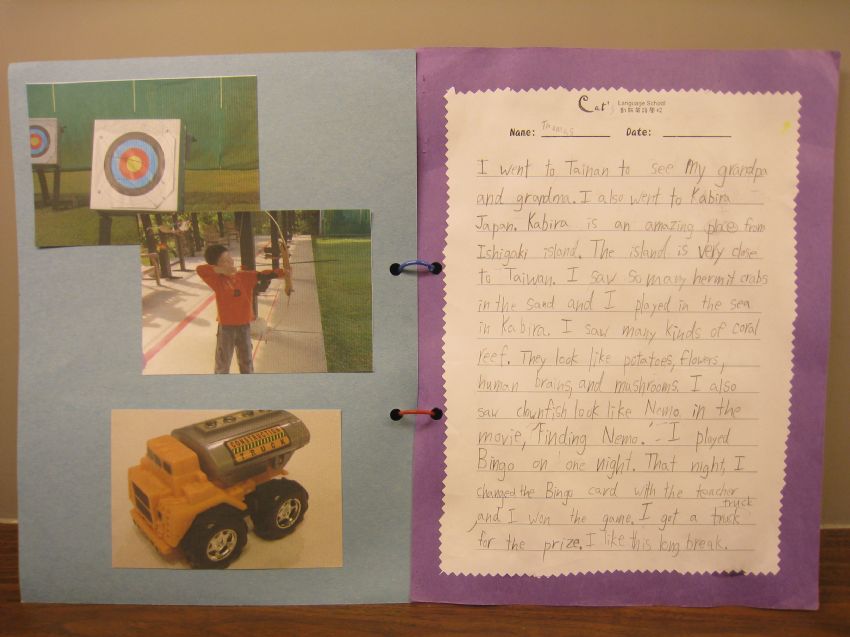 CONSTRUCTION
TRUCK
Cat's Language School
Name: Thomas Date:
I went to Tainan to see My grandpa
and grandma. I also went to Kabira
Japan. Kabira is an amazing place from
Ishigaki island. The island is very close
to Taiwan. I saw so many hermit crabs
in the sand and I played in the sea
in Kabira. I saw many kinds of coral
reef. They look like potatoes, flowers,
human brains, and mushrooms. I also
saw clownfish look like Nemo in the
movie, "Finding Nemo." I played
Bingo on one night. That night, I
changed the Bingo card with the teacher
and I won the game. I get a truck
for the prize. I like this long break.